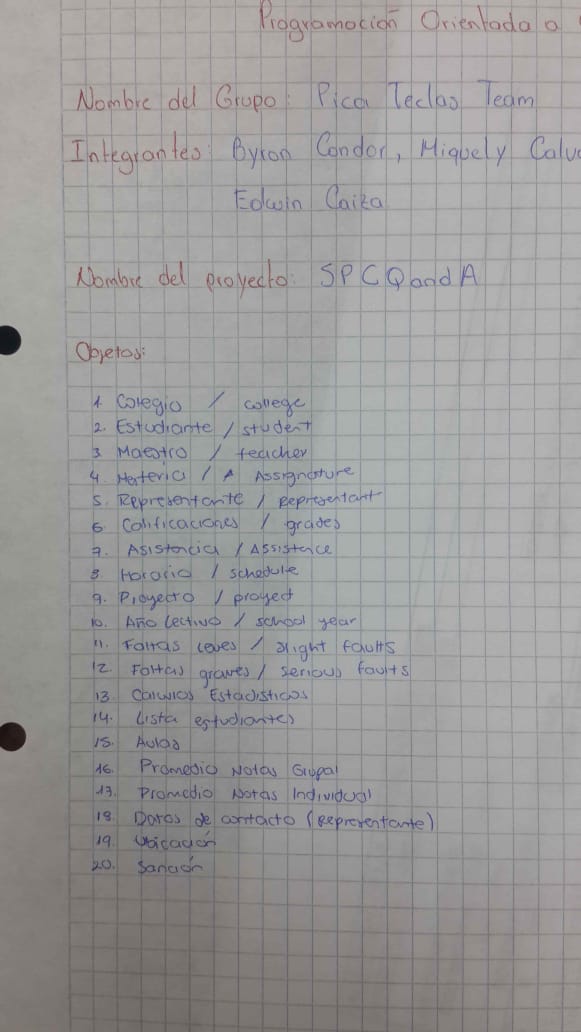 Programación Orientada a
Nombre del Grupo: Pica Teclas Team
Integrantes: Byron Condor, Miquely
Edwin Caiza
Nombre del proyecto: SPCQandA
Objetos:
1. Colegio / college
2. Estudiante / student
3. Maestro / teacher
4. Materia / A Assignature
5. Representante / Representant
6. Calificaciones / grades
7. Asistencia / Assistence
8. Horario / schedule
9. Proyecto / proyect
10. Año Lectivo / school year
11. Faltas leves / slight faults
12. Faltas graves / serious faults
13. Calculos Estadisticos
14. Lista estudiantes
15. Aulas
16. Promedio Notas Grupal
17. Promedio Notas Individual
18. Datos de contacto (Representante)
19. Ubicación
20. Sanción